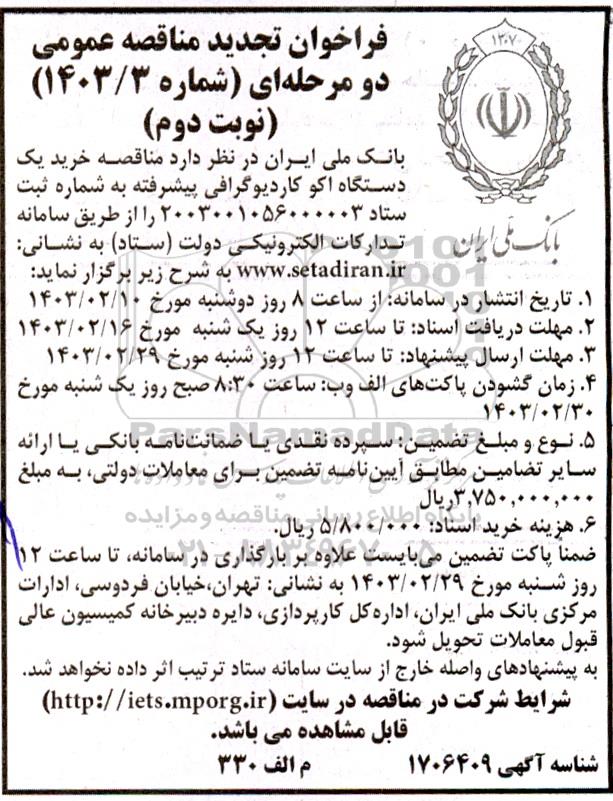 فراخوان تجدید مناقصه عمومی
دو مرحله‌ای (شماره ۱۴۰۳/۳)
(نوبت دوم)
۱۳۰۷
بانک ملی ایران
بانک ملی ایران در نظر دارد مناقصه خرید یک
دستگاه اکو کاردیوگرافی پیشرفته به شماره ثبت
ستاد ۲۰۰۳۰۰۱۰۵۶۰۰۰۰۰۳ را از طریق سامانه
تدارکات الکترونیکی دولت (ستاد) به نشانی:
www.setadiran.ir به شرح زیر برگزار نماید:
۱. تاریخ انتشار در سامانه: از ساعت ۸ روز دوشنبه مورخ ۱۴۰۳/۰۲/۱۰
۲. مهلت دریافت اسناد: تا ساعت ۱۲ روز یک شنبه مورخ ۱۴۰۳/۰۲/۱۶
۳. مهلت ارسال پیشنهاد: تا ساعت ۱۲ روز شنبه مورخ ۱۴۰۳/۰۲/۲۹
۴. زمان گشودن پاکت‌های الف وب: ساعت ۸:۳۰ صبح روز یک شنبه مورخ
۱۴۰۳/۰۲/۳۰
ParsNamadData
۵. نوع و مبلغ تضمین: سپرده نقدی یا ضمانت‌نامه بانکی یا ارائه
سایر تضامین مطابق آیین‌نامه تضمین برای معاملات دولتی، به مبلغ
۳,۷۵۰,۰۰۰,۰۰۰ریال
پایگاه اطلاع رسانی مناقصه و مزایده
۶. هزینه خرید اسناد: ۵/۸۰۰/۰۰۰ ریال.
۰۲۱-۸۸۳۴۹۶۷۰-۵
ضمناً پاکت تضمین می‌بایست علاوه بر بارگذاری در سامانه، تا ساعت ۱۲
روز شنبه مورخ ۱۴۰۳/۰۲/۲۹ به نشانی: تهران،خیابان فردوسی، ادارات
مرکزی بانک ملی ایران، اداره‌کل کارپردازی، دایره دبیرخانه کمیسیون عالی
قبول معاملات تحویل شود.
به پیشنهادهای واصله خارج از سایت سامانه ستاد ترتیب اثر داده نخواهد شد.
شرایط شرکت در مناقصه در سایت (http://iets.mporg.ir)
قابل مشاهده می باشد.
شناسه آگهی ۱۷۰۶۴۰۹ م الف ۳۳۰